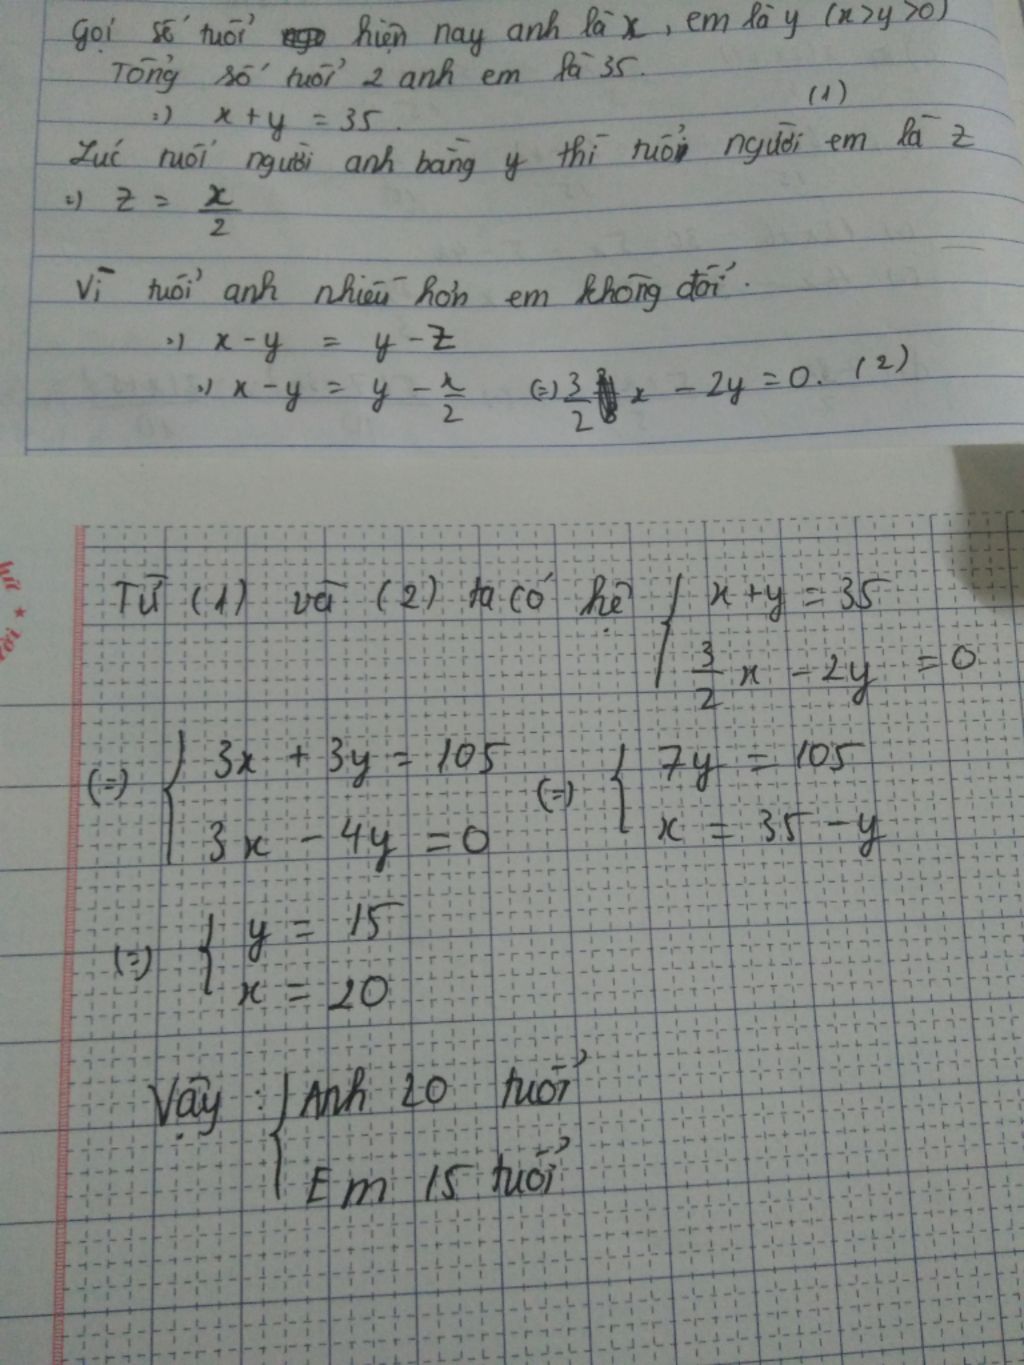 Gọi số tuổi hiện nay anh là x, em là y (x>y>0)
Tổng số tuổi 2 anh em là 35.
=) x + y = 35. (1)
Lúc tuổi người anh bằng y thì tuổi người em là z
=) z = x/2
Vì tuổi anh nhiều hơn em không đổi.
=) x - y = y - z
=) x - y = y - x/2 (=) 3/2 x - 2y = 0. (2)
Từ (1) và (2) ta có hệ { x + y = 35
3/2 x - 2y = 0
(=) { 3x + 3y = 105 (=) { 7y = 105
3x - 4y = 0 x = 35 - y
(=) { y = 15
x = 20
Vậy : { Anh 20 tuổi
Em 15 tuổi